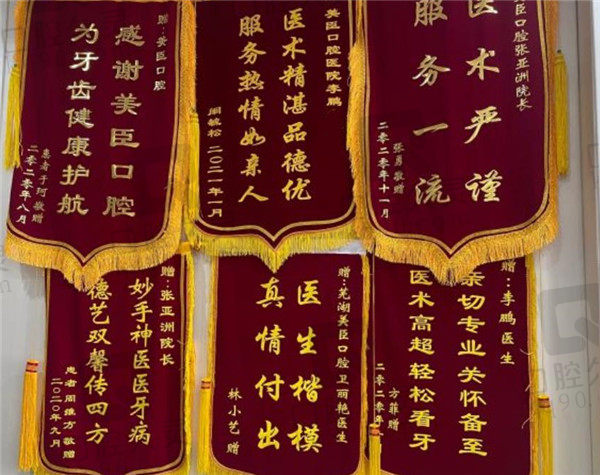 赠:美臣口腔
感谢美臣口腔
为牙齿健康护航
患者于珂敬赠
二零二零年八月
美臣口腔医院李鹏
医术精湛品德优
服务热情如亲人
阚毓松
二〇二一年一月
臣口腔张亚洲院长
医术严谨
服务一流
张勇敬赠
二零二零年十一月
赠:张亚洲院长
妙手神医医牙病
德艺双馨传四方
患者周维方敬赠
二〇二〇年九月
赠:芜湖美臣口腔卫丽艳医生
医生楷模
真情付出
林小艺赠
赠:李鹏医生
亲切专业关怀备至
医术高超轻松看牙
方菲赠